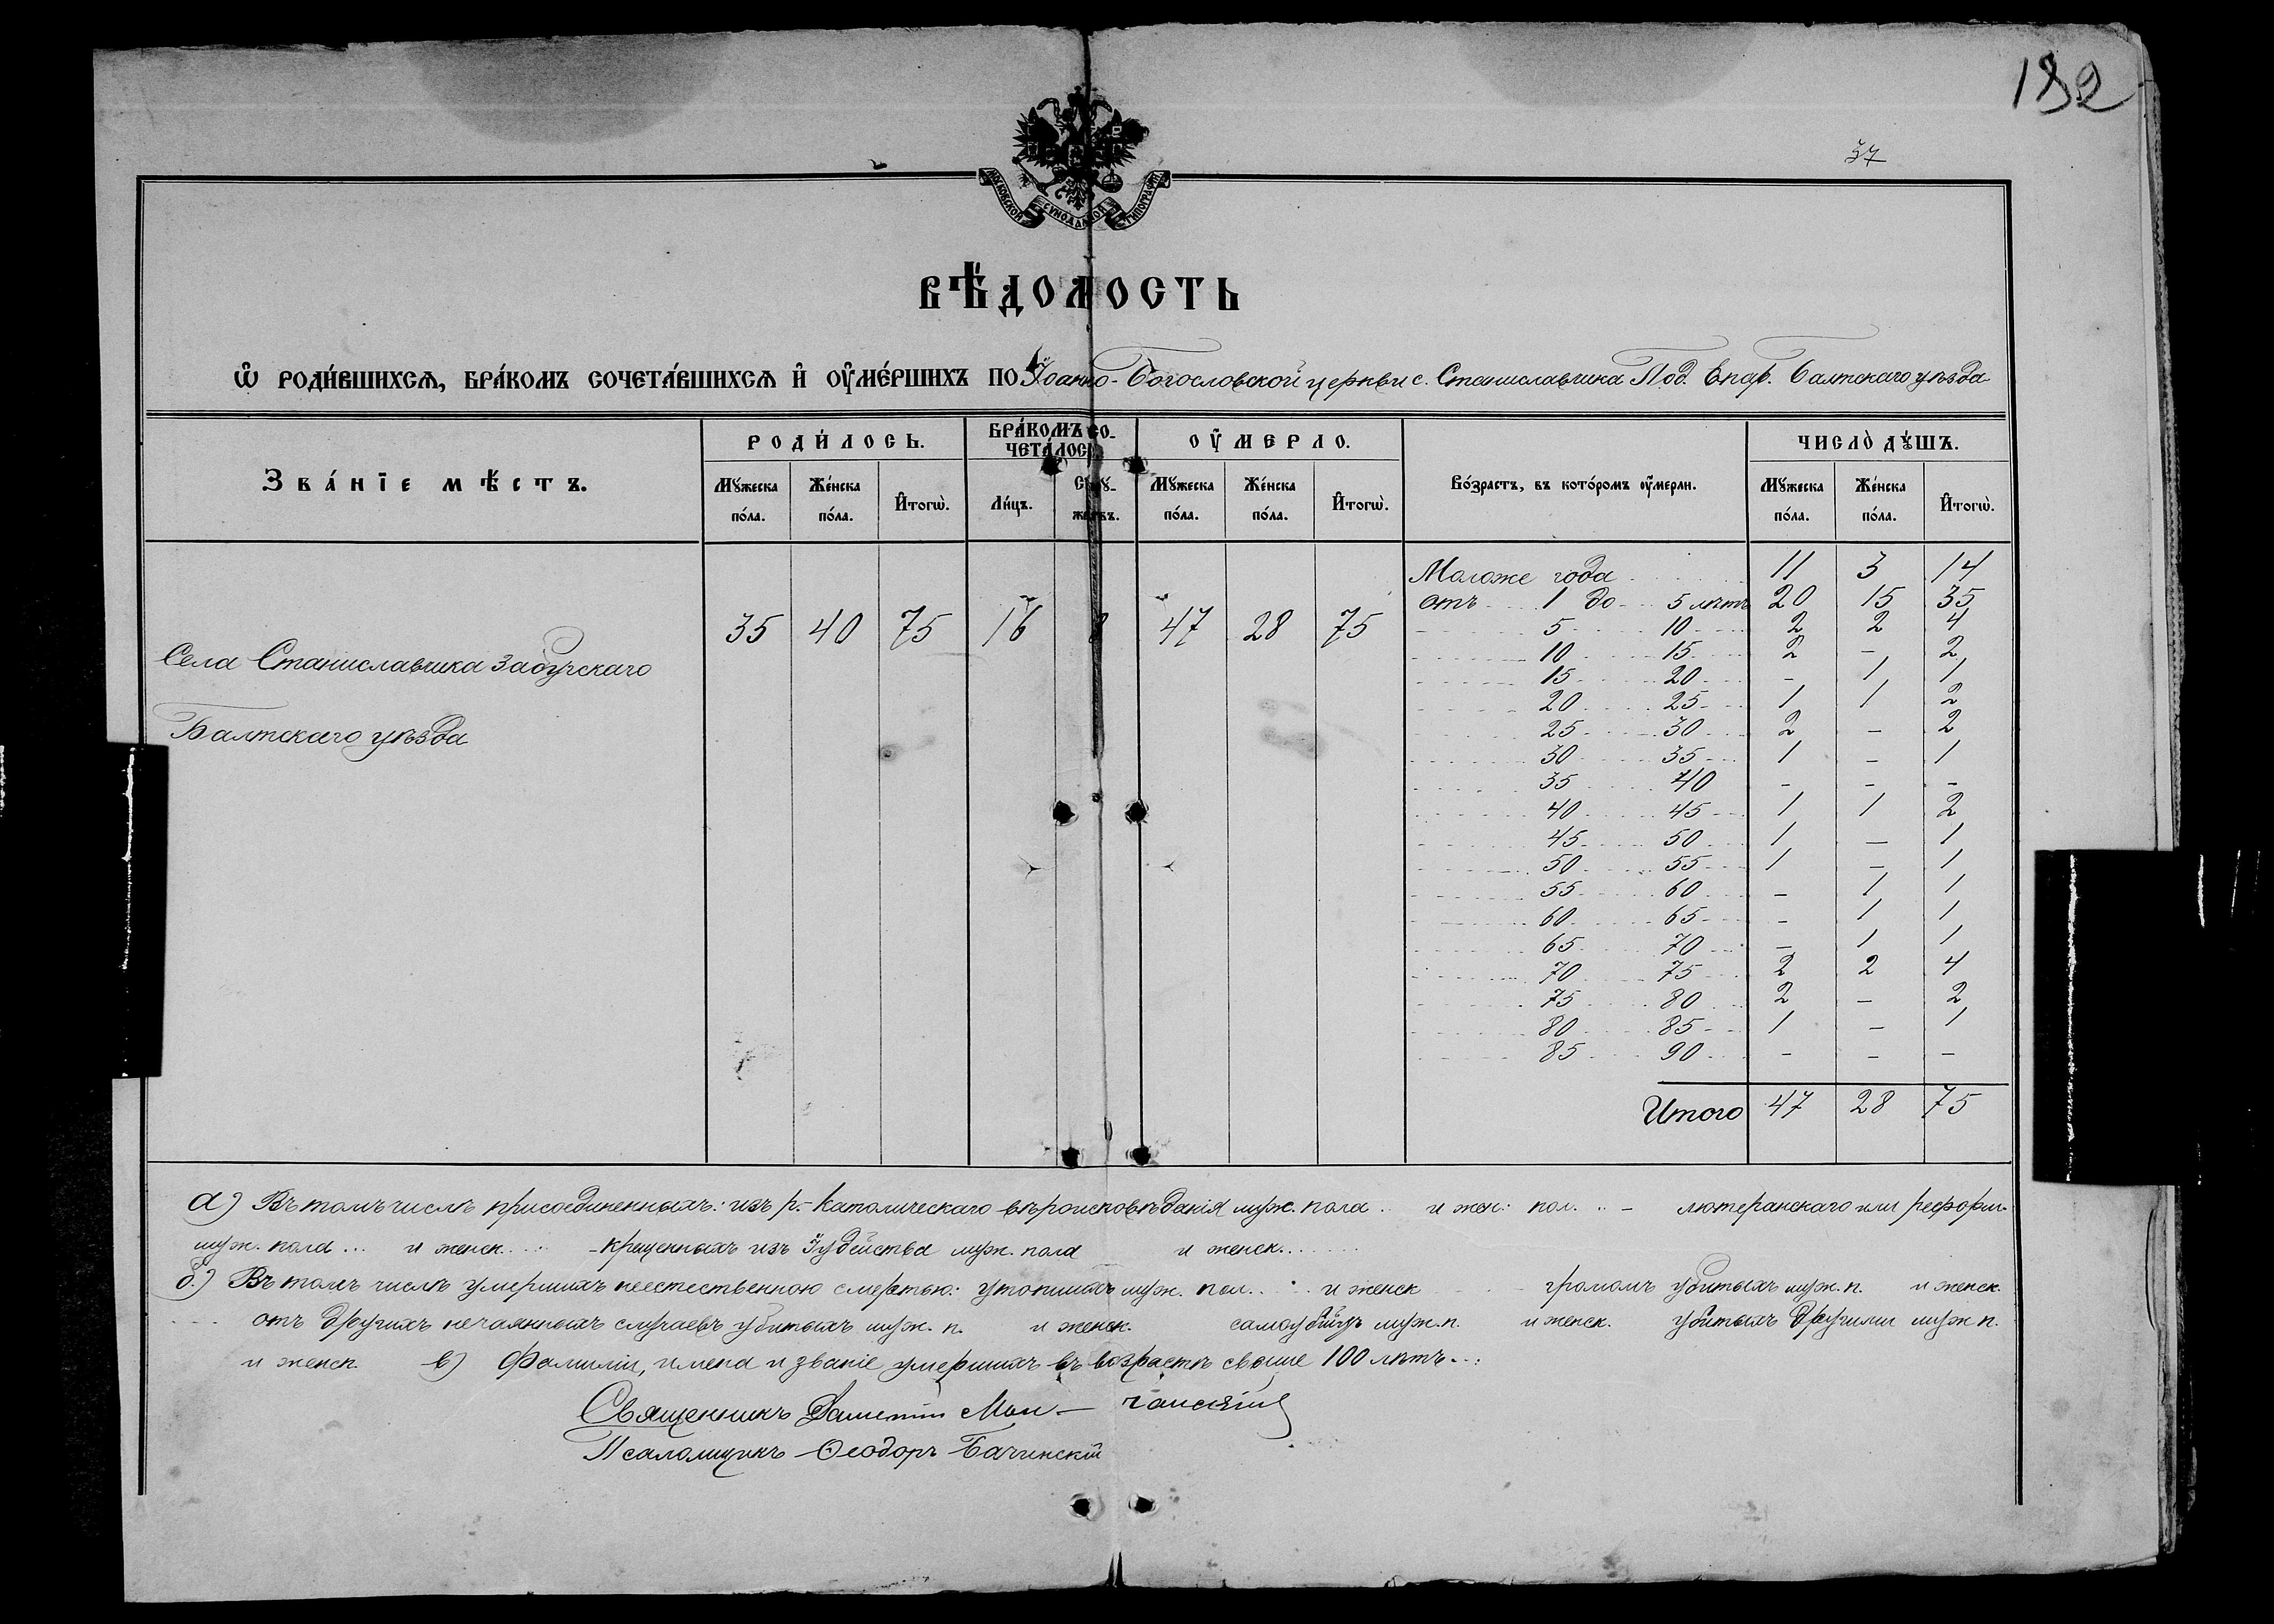 182
37
МОСКОВСКОЙ СѴНОДАЛЬНОЙ ТИПОГРАФІИ
ВѢ́ДОМОСТЬ
Ѽ РОДИ́ВШИХСѦ, БРА́КОМЪ СОЧЕТА́ВШИХСѦ И҆ ОУ҆МЕ́РШИХЪ ПО Іоанно-Богословской церкви с. Станиславчика Под. Епар. Балтскаго уѣзда
Зва́нїе мѣ́стъ.
РОДИ́ЛОСЬ.
БРА́КОМЪ СО-
ЧЕТА́ЛОСЬ
ОУ҆МЕРЛО.
Во́зрастъ, въ кото́ромъ оу҆мерли.
ЧИСЛО̀ ДꙊ́ШЪ.
Мꙋ́жеска по́ла. Же́нска по́ла. И҆тогѡ̀. Ли́цъ. Сꙋпрꙋ́-жествъ. Мꙋ́жеска по́ла. Же́нска по́ла. И҆тогѡ̀. Мꙋ́жеска по́ла. Же́нска по́ла. И҆тогѡ̀.
Села Станиславчика Забугскаго
Балтскаго уѣзда
35 40 75 16 8 47 28 75
Моложе года 11 3 14
отъ 1 до 5 лѣтъ 20 15 35
5 10 2 2 4
10 15 2 - 2
15 20 - 1 1
20 25 1 1 2
25 30 2 - 2
30 35 1 - 1
35 40 - - -
40 45 1 1 2
45 50 1 - 1
50 55 1 - 1
55 60 - 1 1
60 65 - 1 1
65 70 - 1 1
70 75 2 2 4
75 80 2 - 2
80 85 1 - 1
85 90 - - -
Итого 47 28 75
а) Въ томъ числѣ присоединенныхъ: изъ р.-католическаго вѣроисповѣданія муж. пола .. и жен: пол. .. - лютеранскаго или реформ.
муж. пола ... и женск. ... - крещенныхъ изъ Іудейства муж. пола и женск. ...
б.) Въ томъ числѣ умершихъ неестественною смертью: утопшихъ муж. пол. ... и женск громомъ убитыхъ муж. п. и женск.
отъ другихъ нечаянныхъ случаевъ убитыхъ муж. п. и женск. самоубійцъ муж. п. и женск. убитыхъ другими муж п.
и женск. в) Фамиліи, имена и званіе умершихъ въ возрастѣ свыше 100 лѣтъ...
Священникъ
Псаломщикъ Ѳеодоръ Бачинскій